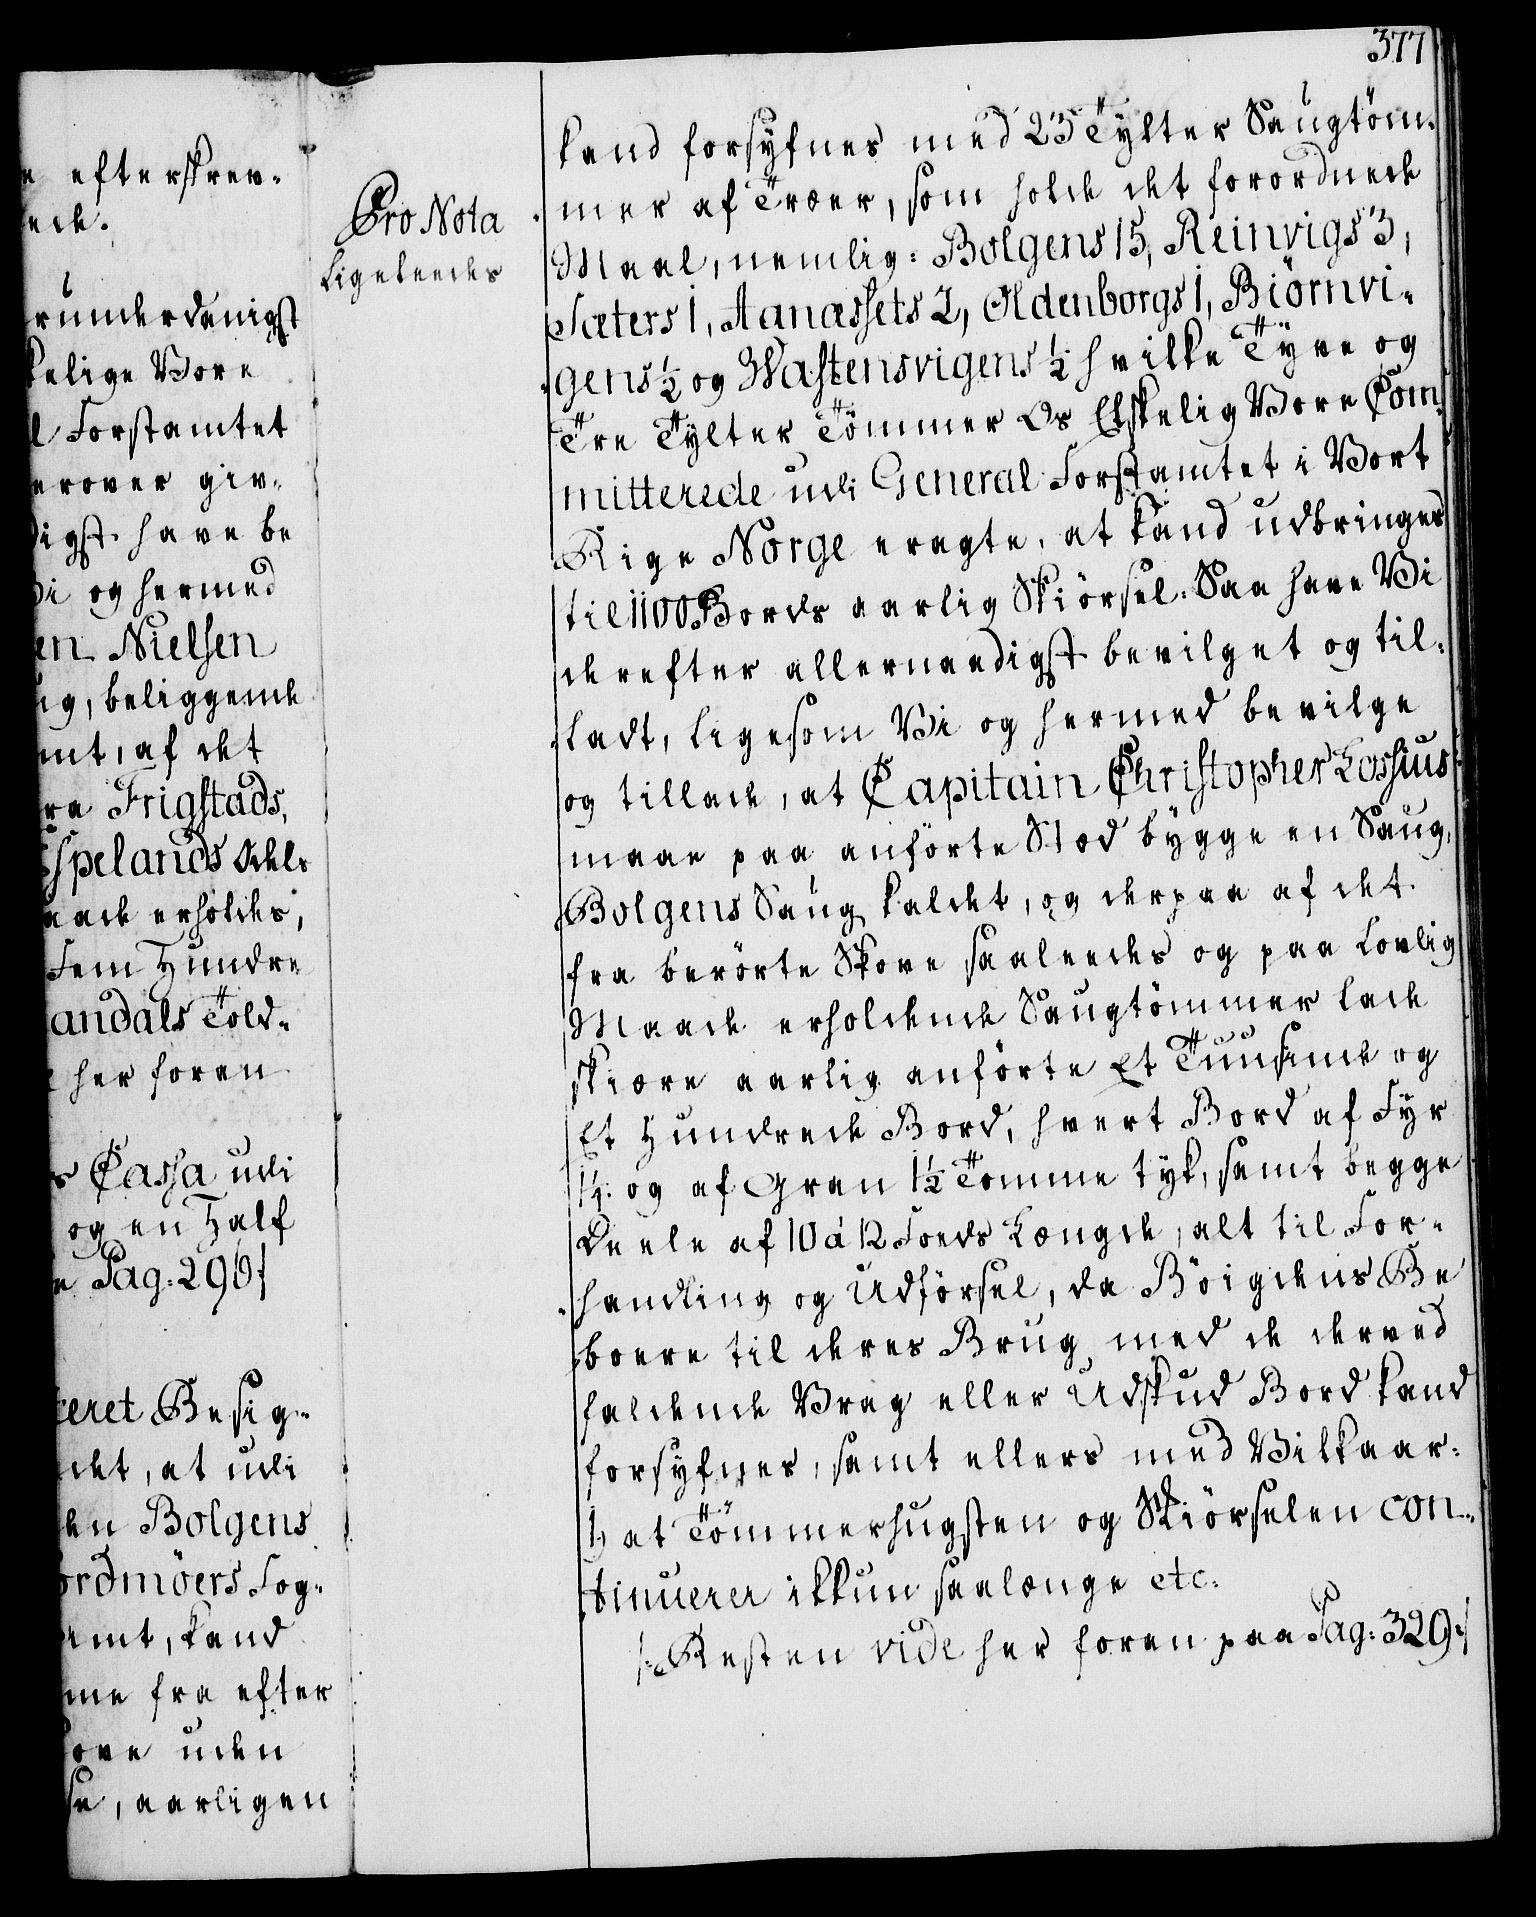 377
e efterskrev-
ede.
erunderdanigst
kelige Vore
l Forstamtet
erover giv-
digst have be
Vi og hermed
en Nielsen
ug, beliggende
mt, af det
ra Frigstads,
Espelands Odels
aade erholdes,
Fem Hundre
andals Told-
e her foren
s Cassa udi
og en Half
e Pag: 296:/
teret Besig-
det, at udi
den Bolgens
ordmöers Fog-
Amt, kand
me fra efter
ove uden
se, aarligen
Pro Nota
Ligeledes
kand forsyfnes med 23 Tylter Saugtöm-
mer af Træer, som holde det forordnede
Maal, nemlig: Bolgens 15, Reinvigs 3,
Sæters 1, Aanæssets 2, Oldenborgs 1, Biörnvi-
gens ½ og Wastensvigens ½ hvilke Tyve og
Tre Tylter Tömmer Os Elskelig Vore Com-
mitterede udi General Forstamtet i Vort
Rige Norge eragte, at kand udbringes
til 1100 Bords aarlig Skiörsel. Saa have Vi
derefter allernaadigst bevilget og til-
ladt, ligesom Vi og hermed bevilge
og tillade, at Capitain Christopher Lossius
maae paa anförte Stæd bygge en Saug,
Bolgens Saug kaldet, og derpaa af det
fra berörte Skove saaleedes og paa Lovlig
Maade erholdende Saugtömmer lade
skiære aarlig anförte Et Tuusinde og
Et Hundrede Bord, hvert Bord af Fyr
1¼ og af Gran 1½ Tomme tyk, samt begge
Deele af 10 á 12 Foeds Længde, alt til For-
handling og Udförsel, da Böigdens Be
boere til deres Brug med de derved
faldende Vrag eller Udskud Bord kand
forsyfnes, samt ellers med Vilkaar:
1) at Tömmerhugsten og Skiörselen con-
tinuerer ikkun saalænge etc:
/: Resten vide her foren paa Pag: 329:/